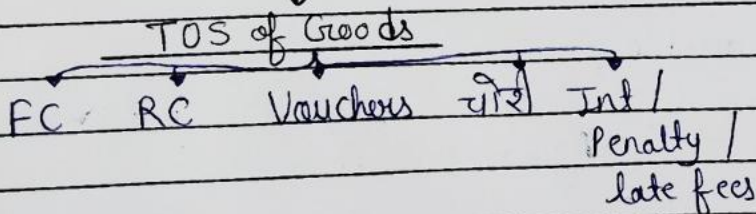 TOS of Goods
FC RC Vouchers चोरी Int /
Penalty /
late fees